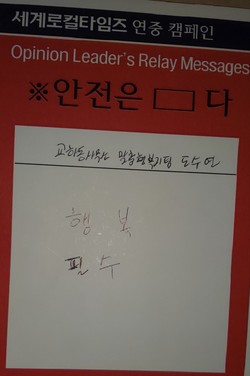 세계로컬타임즈 연중 캠페인
Opinion Leader's Relay Messages
※안전은 □ 다
맞춤형복지팀 도수연
행 복
필 수